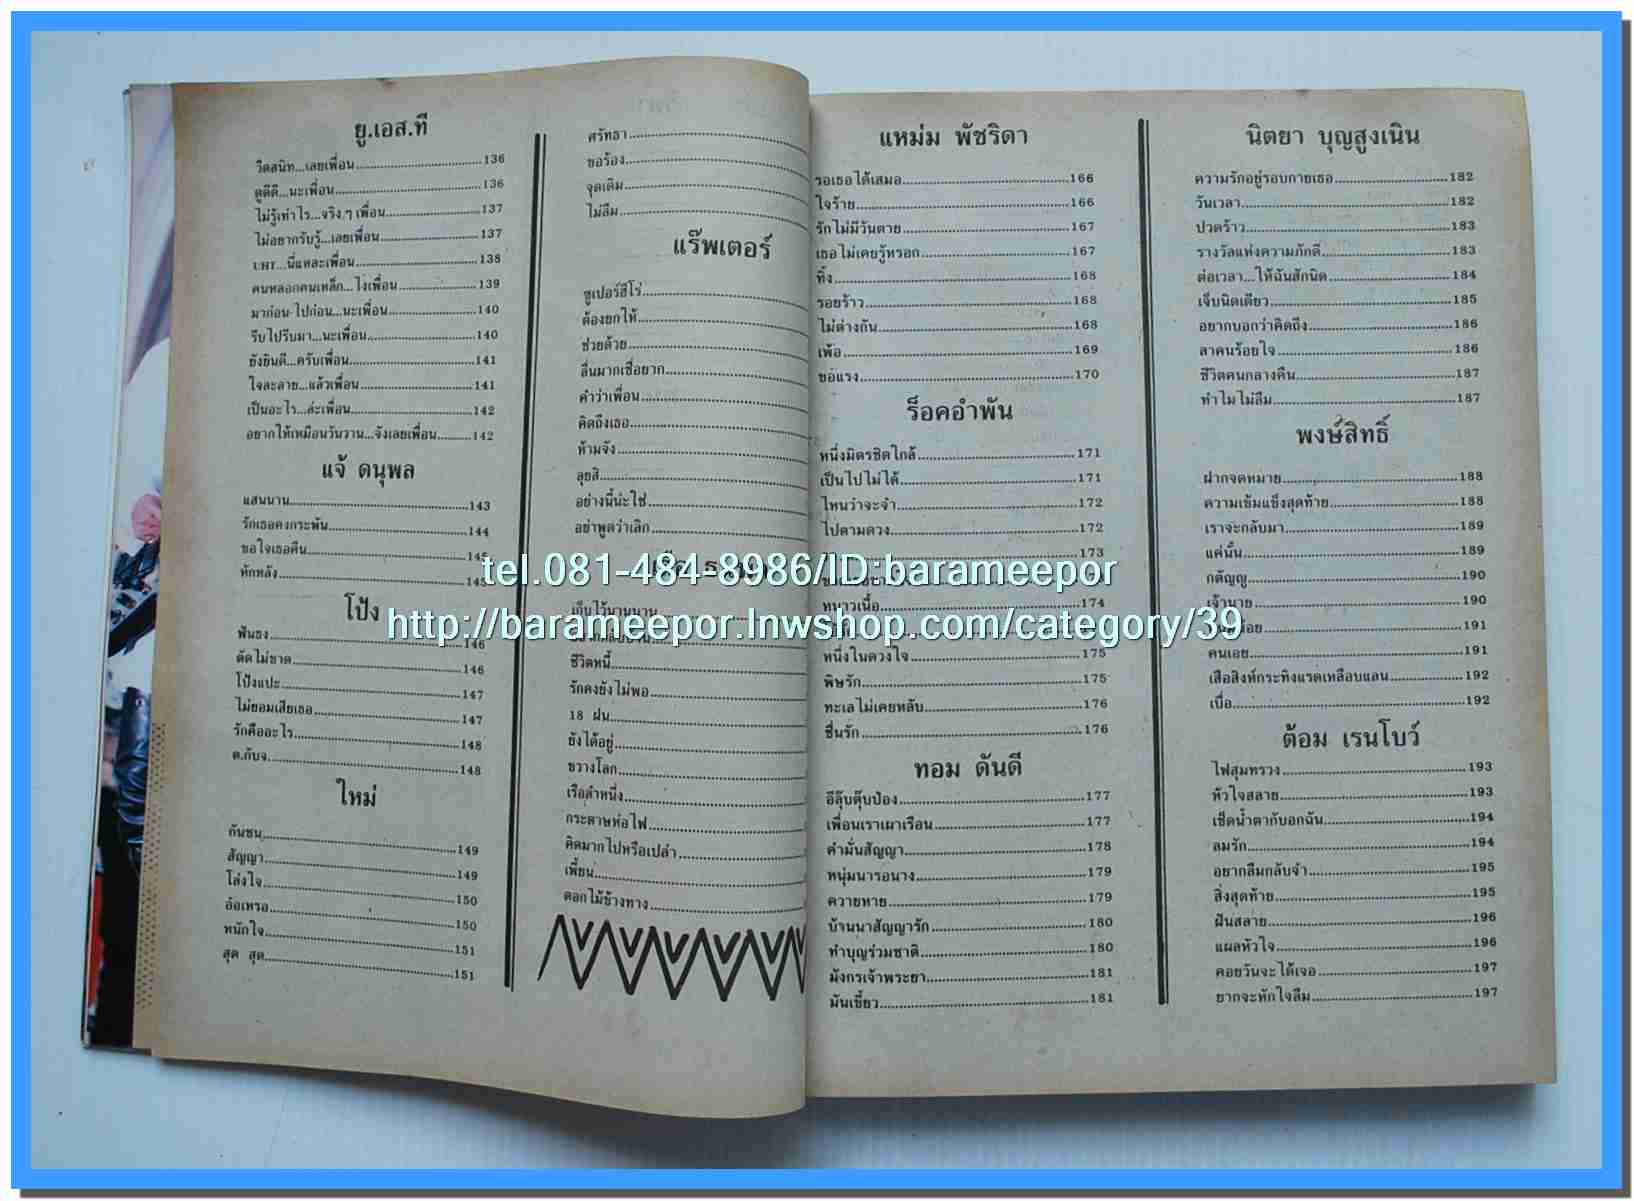 ยู.เอส.ที
วีดสนิท...เลยเพื่อน 136
ดูดีดี...นะเพื่อน 136
ไม่รู้เท่าไร...จริงๆ เพื่อน 137
ไม่อยากรับรู้...เลยเพื่อน 137
UHT...นี่แหละเพื่อน 138
คนหลอกคนเหล็ก...ไงเพื่อน 139
มาก่อน-ไปก่อน...นะเพื่อน 140
รีบไปรีบมา...นะเพื่อน 140
ยังยินดี...ครับเพื่อน 141
ใจละลาย...แล้วเพื่อน 141
เป็นอะไร...ล่ะเพื่อน 142
อยากให้เหมือนวันวาน...จังเลยเพื่อน 142
แจ้ ดนุพล
แสนนาน 143
รักเธอคงกระพัน 144
ขอใจเธอคืน 145
หักหลัง 145
โป้ง
ฟันธง 146
ตัดไม่ขาด 146
โป้งแปะ 147
ไม่ยอมเสียเธอ 147
รักคืออะไร 148
ด.กับจ 148
ใหม่
กันชน 149
สัญญา 149
โล่งใจ 150
อ๋อเหรอ 150
หนักใจ 151
สุด สุด 151
ศรัทธา
ขอร้อง
จุดเดิม
ไม่ลืม
แร๊พเตอร์
ซูเปอร์ฮีโร่
ต้องยกให้
ช่วยด้วย
ลื่นมากเชื่อยาก
คำว่าเพื่อน
คิดถึงเธอ
ห้ามจัง
ลุยสิ
อย่างนี้น่ะใช่
อย่าพูดว่าเลิก
เก็บไว้นานนาน
ชีวิตหนี้
รักคงยังไม่พอ
18 ฝน
ยังได้อยู่
ขวางโลก
เรือลำหนึ่ง
กระดาษห่อไฟ
คิดมากไปหรือเปล่า
เพี้ยน
ดอกไม้ข้างทาง
แหม่ม พัชริดา
รอเธอได้เสมอ 166
ใจร้าย 166
รักไม่มีวันตาย 167
เธอไม่เคยรู้หรอก 167
ทิ้ง 168
รอยร้าว 168
ไม่ต่างกัน 168
เพ้อ 169
ขอแรง 170
ร็อคอำพัน
หนึ่งมิตรชิดใกล้ 171
เป็นไปไม่ได้ 171
ไหนว่าจะจำ 172
ไปตามดวง 172
173
หนาวเนื้อ 174
หนึ่งในดวงใจ 175
พิษรัก 175
ทะเลไม่เคยหลับ 176
ชื่นรัก 176
ทอม ดันดี
อีลุ๊บตุ๊บป่อง 177
เพื่อนเราเผาเรือน 177
คำมั่นสัญญา 178
หนุ่มนารอนาง 179
ควายหาย 179
บ้านนาสัญญารัก 180
ทำบุญร่วมชาติ 180
มังกรเจ้าพระยา 181
มันเขี้ยว 181
นิตยา บุญสูงเนิน
ความรักอยู่รอบกายเธอ 182
วันเวลา 182
ปวดร้าว 183
รางวัลแห่งความภักดี 183
ต่อเวลา...ให้ฉันสักนิด 184
เจ็บนิดเดียว 185
อยากบอกว่าคิดถึง 186
ลาคนร้อยใจ 186
ชีวิตคนกลางคืน 187
ทำไมไม่ลืม 187
พงษ์สิทธิ์
ฝากจดหมาย 188
ความเข้มแข็งสุดท้าย 188
เราจะกลับมา 189
แค่นั้น 189
กตัญญู 190
เจ้านาย 190
191
คนเอย 191
เสือสิงห์กระทิงแรดเหลือบแลน 192
เบื่อ 192
ต้อม เรนโบว์
ไฟสุมทรวง 193
หัวใจสลาย 193
เช็ดน้ำตากับอกฉัน 194
ลมรัก 194
อยากลืมกลับจำ 195
สิ่งสุดท้าย 195
ฝันสลาย 196
แผลหัวใจ 196
คอยวันจะได้เจอ 197
ยากจะหักใจลืม 197
tel.081-484-8986/ID:barameepor
http://barameepor.lnwshop.com/category/39